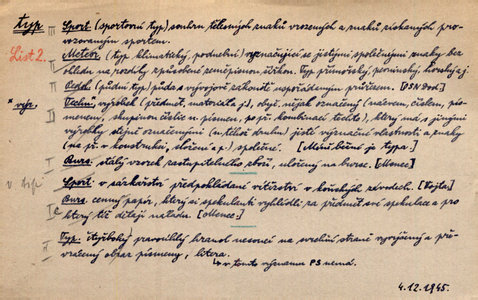 typ III Sport. (sportovní typ) souhrn tělesných znaků vrozených a znaků získaných pro-
vozovaným sportem.
List 2. Meteor. (typ klimatický, podnební) vyznačující se jistými společnými znaky bez
ohledu na rozdíly způsobené zeměpisnou šířkou. Typ přímořský, pevninský, horský a j.
II Pedol. (půdní typ) půda s vývojově zákonitě uspořádaným průřezem. [ČSN]
* výr. Techn. výrobek (předmět, materiál a j.), obyč. nějak označený (názvem, číslem, pís-
menem, skupinou číslic n. písmen, po př. kombinací těchto), který má s jinými
výrobky stejně označenými (n. téhož druhu) jisté význačné vlastnosti a znaky
(na př. v konstrukci, složení a p.), společné. [Mění běžně je typa.]
I Burs. stálý vzorek zastupitelného zboží, uložený na burse. [Menec]
v typ Sport. v sázkařství předpokládané vítězství v koňských závodech. [Vojta]
I Burs. cenný papír, který si spekulanti vyhlédli za předmět své spekulace a pro
který též dělají náladu. [Menec]
Typ. čtyřboký pravoúhlý hranol nesoucí na vrchní straně vyvýšený a pře-
vrácený obraz písmeny, litera.
v tomto významu PS nemá.
4.12.1945.